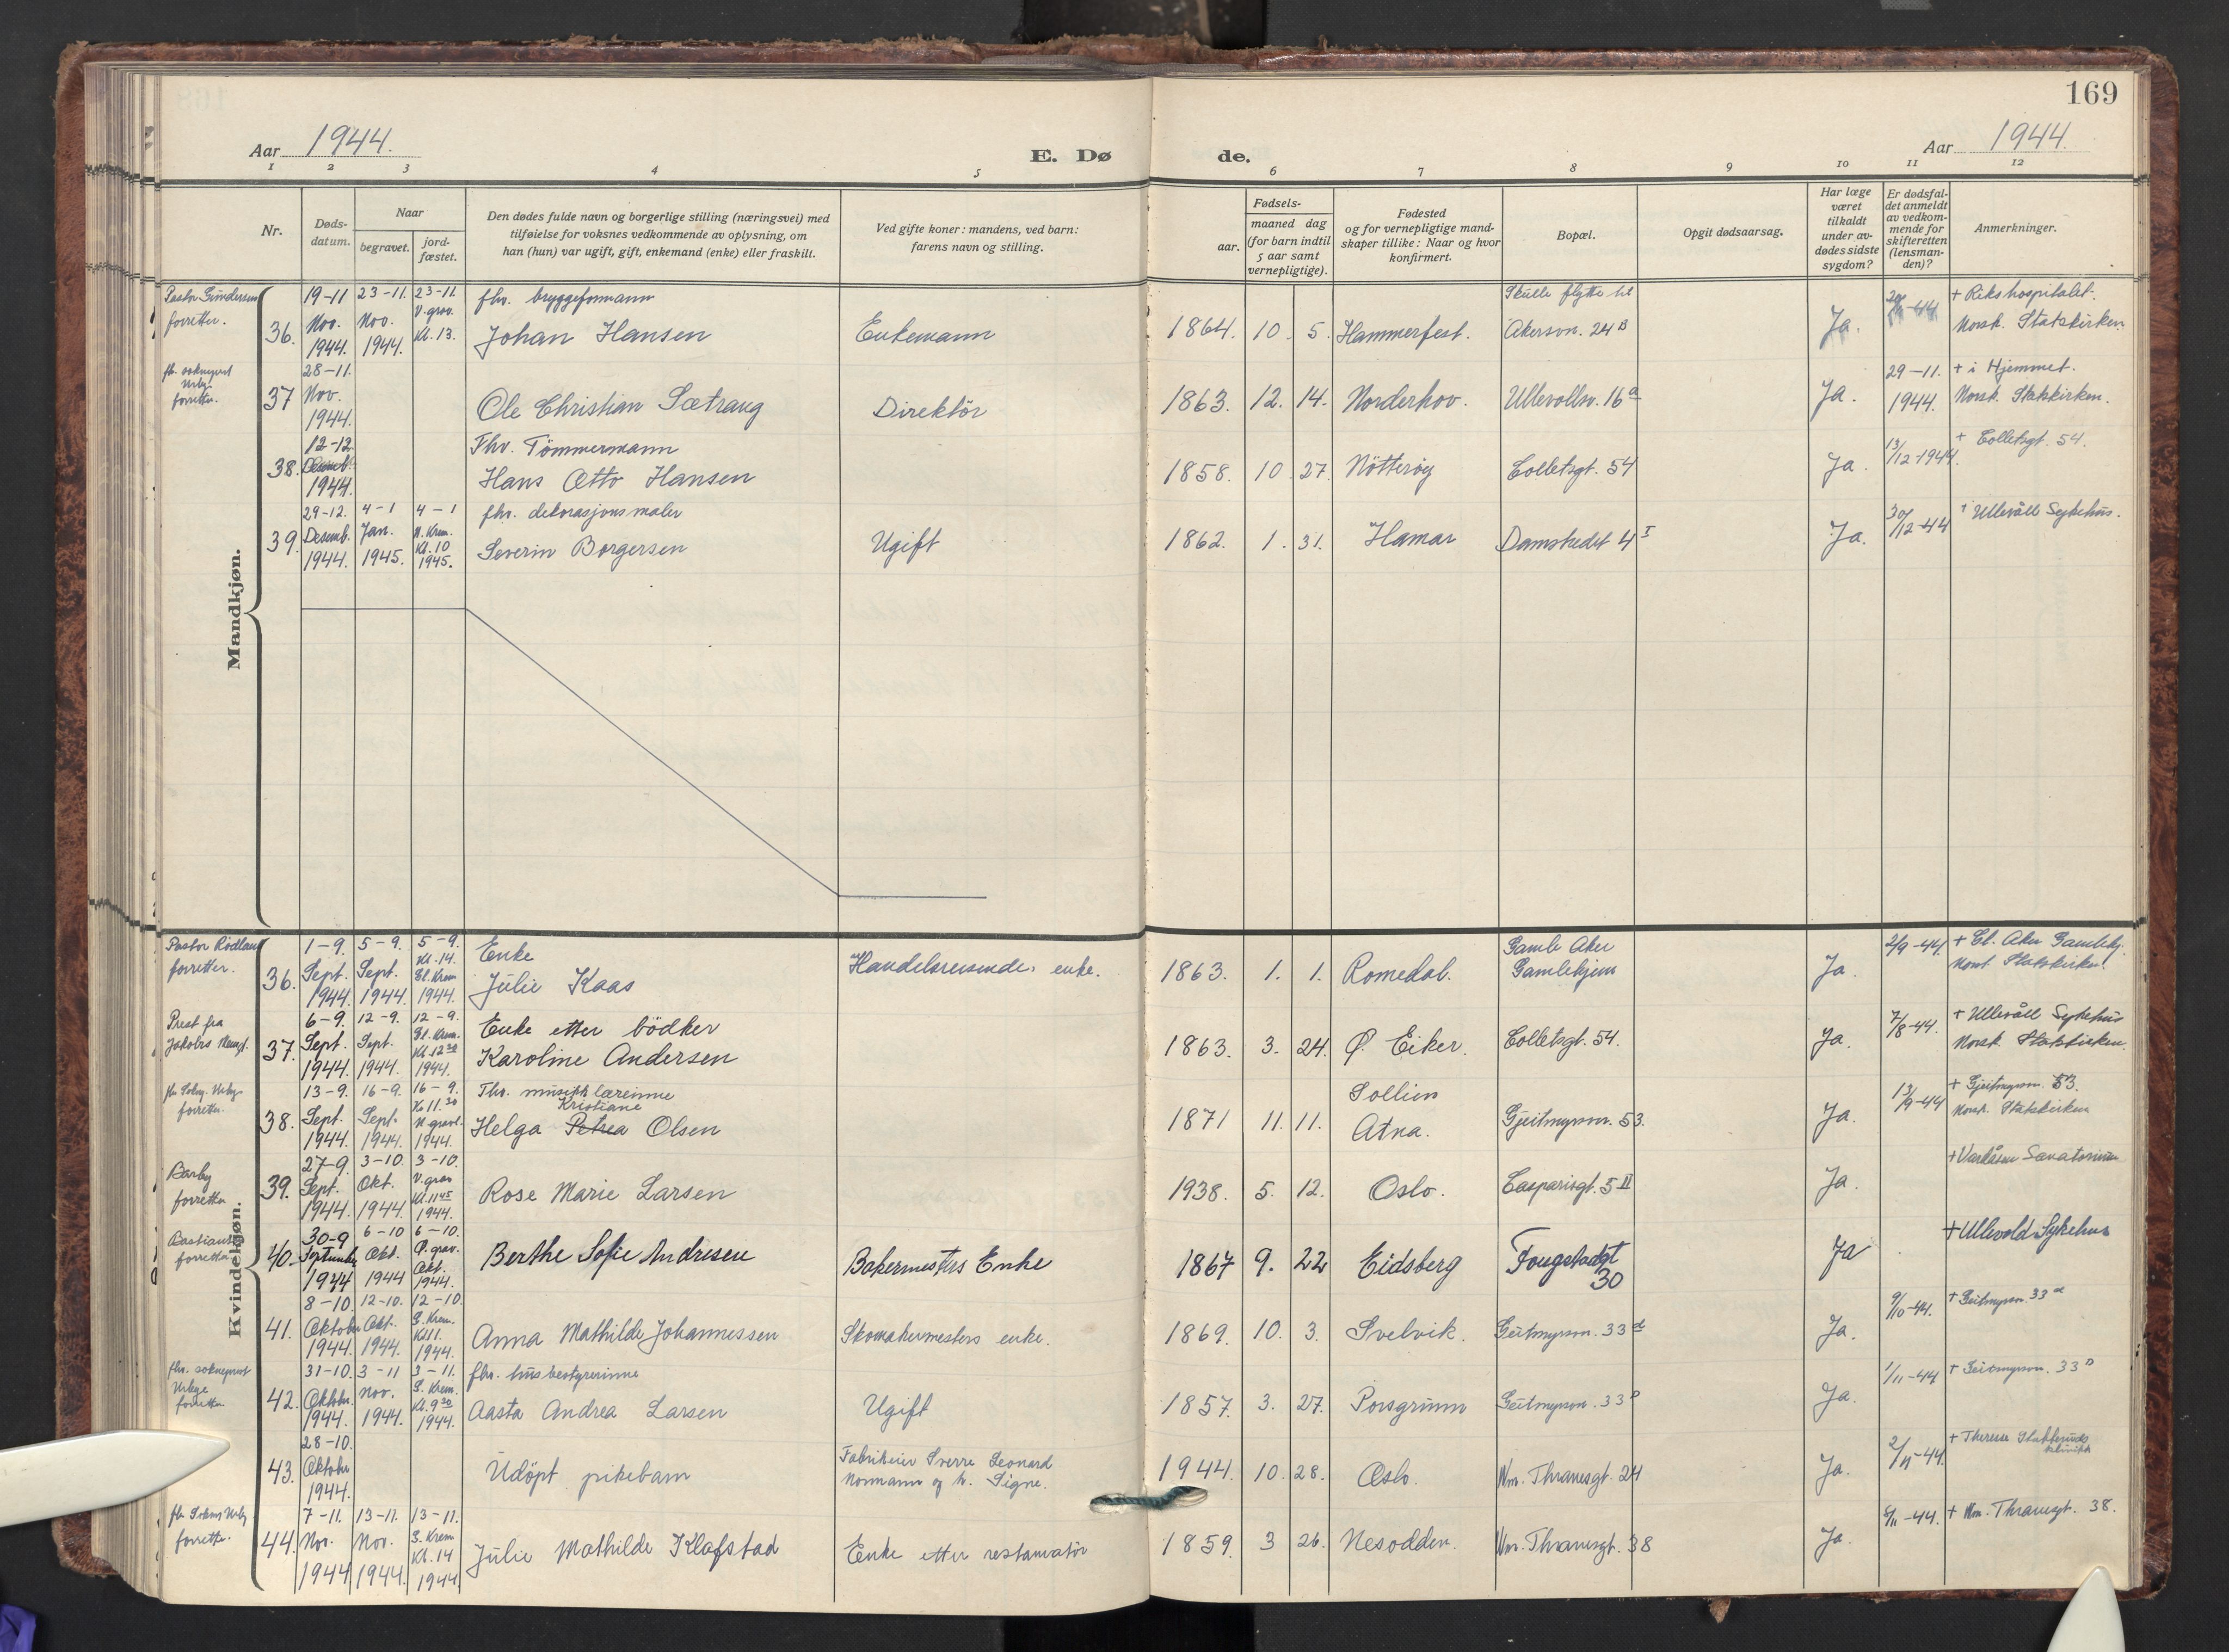 169
Aar 1944.
E. Dø
de.
Aar 1944.
1 2 3 4 5 6 7 8 9 10 11 12
Nr.
Døds-
datum.
Naar
begravet.
jord-
fæstet.
Den dødes fulde navn og borgerlige stilling (næringsvei) med
tilføielse for voksnes vedkommende av oplysning, om
han (hun) var ugift, gift, enkemand (enke) eller fraskilt.
Ved gifte koner: mandens, ved barn:
farens navn og stilling.
Fødsels-
aar.
maaned dag
(for barn indtil
5 aar samt
vernepligtige).
Fødested
og for vernepligtige mand-
skaper tillike: Naar og hvor
konfirmert.
Bopæl.
Opgit dødsaarsag.
Har læge
været
tilkaldt
under av-
dødes sidste
sygdom?
Er dødsfal-
det anmeldt
av vedkom-
mende for
skifteretten
(lensman-
den)?
Anmerkninger.
Mandkjøn.
Pastor Gundersen
forretter.
36.
19-11
Nov.
1944.
23-11.
Nov.
1944.
23-11.
V. grav.
Kl. 13.
fhv. bryggeformann
Johan Hansen
Enkemann
1864. 10. 5. Hammerfest.
Skulle flytte til
Akersvn. 24 B
Ja.
-44
+ Rikshospitalet.
Norsk. Statskirken
forretter.
37
28-11.
Nov.
1944.
Ole Christian Sætrang
Direktör
1863. 12. 14. Norderhov. Ullevollsv. 16 a
Ja.
29-11.
1944.
+ i Hjemmet.
Norsk. Statskirken.
38.
12-12.
Desemb.
1944.
Fhv. Tömmermann
Hans Otto Hansen
1858. 10. 27. Nötteröy Colletsgt. 54
Ja.
13/12-1944.
+ Colletsgt. 54.
39.
29-12.
Desemb.
1944.
4-1
Jan.
1945.
4-1
N. Krem.
Kl. 10
1945.
fhv. dekorasjonsmaler
Severin Borgersen
Ugift
1862. 1. 31. Hamar Damstredet 4 I
Ja.
30/12-44
+ Ullevåll Sykehus.
Kvindekjøn.
Pastor Rödland
forretter.
36.
1-9.
Sept.
1944.
5-9.
Sept.
1944.
5-9.
Kl. 14.
Gl. Krem
1944.
Enke
Julie Kaas
Handelsreisendes enke.
1863. 1. 1. Romedal.
Gamle Aker
Gamlehjem
Ja.
2/9-44.
+ Gl. Aker Gamlehj.
Norsk Statskirken.
Prest fra
Jakobs Menigh.
37.
6-9.
Sept.
1944.
12-9.
Sept.
1944.
12-9.
Gl. Krem.
Kl. 12 30
1944.
Enke etter bödker
Karoline Andersen
1863. 3. 24. Ø. Eiker. Colletsgt. 54.
Ja.
7/8-44.
+ Ullevåll Sykehus
Norsk. Statskirken.
forretter.
38.
13-9.
Sept.
1944.
16-9.
Sept.
1944.
16-9.
Kl. 11.30
N gravl.
1944.
Fhv. musikklærerinne
Kristiane
Helga Petrea Olsen
1871 11. 11.
Sollien
Atna.
Gjeitmyrsvn. 53.
Ja.
13/9-44
+ Gjeitmyrsvn. 53.
Norsk. Statskirken
Barby
forretter
39.
27-9.
Sept.
1944.
3-10.
Okt.
1944.
3-10.
V. grav
Kl. 11 45
1944.
Rose Marie Larsen
1938. 5. 12. Oslo. Casparisgt. 5 II
Ja.
+ Vardåsen Sanatorium
Bastiansen
forretter
40.
30-9
September
1944
6-10
Okt.
1944
6-10.
Ø. grav.
Okt.
1944.
Berthe Sofie Andresen
Bakermesters Enke
1867 9. 22 Eidsberg
Fougstadsgt
30
Ja
+ Ullevold Sykehus
41.
8-10.
Oktober
1944.
12-10.
Okt.
1944.
12-10.
G. Krem.
Kl 11.
1944.
Anna Mathilde Johannessen
Skomakermesters enke.
1869. 10. 3. Svelvik. Geitmyrsvn. 33 d
Ja.
9/10-44.
+ Geitmyrsvn. 33 d
fhv. sokneprest
forretter
42.
31-10.
Oktober.
1944.
3-11
Nov.
1944.
3-11.
G. Krem.
Kl. 9 30
1944.
fhv. husbestyrerinne
Aasta Andrea Larsen
Ugift
1857. 3. 27. Porsgrunn Geitmyrsvn. 33 D
Ja.
1/11-44
+ Geitmyrsvn. 33 D
43.
28-10.
Oktober
1944.
Udöpt pikebarn
Fabrikeier Sverre Leonard
Normann og h. Signe.
1944. 10. 28. Oslo. Wm. Thranesgt. 24
Ja.
2/11-44.
+ Therese
klinikk
forretter.
44.
7-11.
Nov.
1944
13-11.
Nov.
1944.
13-11.
G. Krem
Kl. 14
1944.
Julie Mathilde Klafstad
Enke etter restauratör
1859. 3 26. Nesodden. Wm. Thranesgt. 38
Ja.
-44.
+ Wm. Thranesgt. 38.